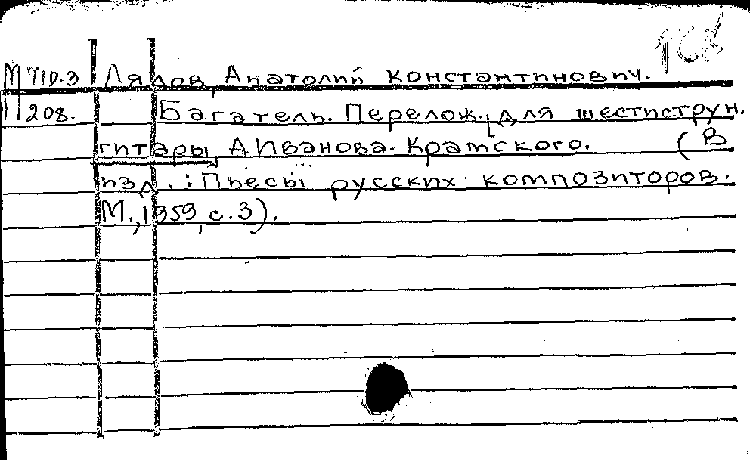 168
М 710.3 Лядов, Анатолий Константинович.
П 208. Багатель. Перелож. для шестиструн.
гитары А Иванова-Крамского. (В
изд.: Пьесы русских композиторов.
М., 1959, с. 3).